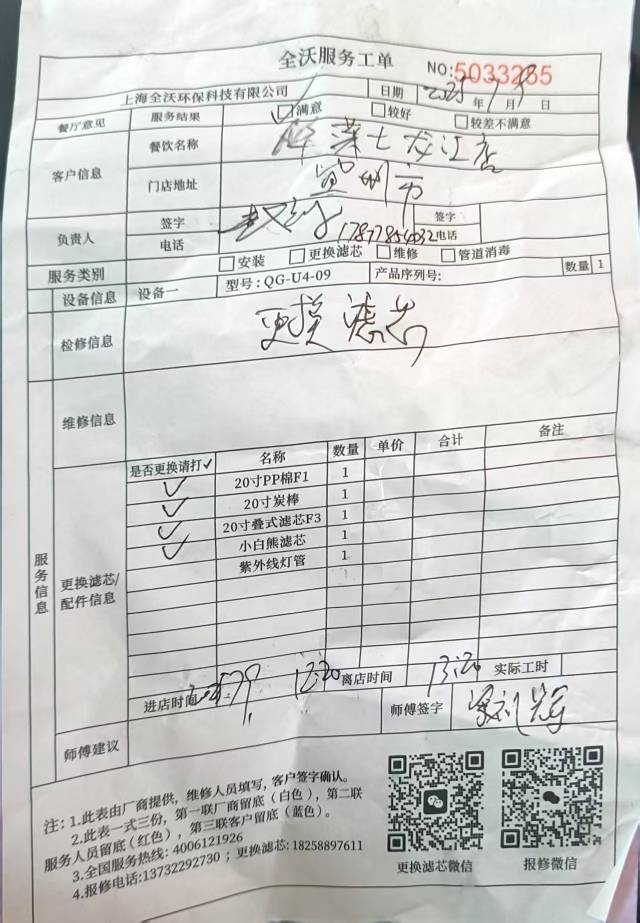 全沃服务工单
NO:5033235
上海全沃环保科技有限公司 日期 2025年7月9日
餐厅意见 服务结果 满意 较好 较差不满意
客户信息 餐饮名称 菜七龙江店
门店地址 州市
负责人 签字 签字
电话 17877854032 电话
服务类别 安装 更换滤芯 维修 管道消毒
设备信息 设备一 型号:QG-U4-09 产品序列号: 数量 1
检修信息 更换滤芯
维修信息
服务信息
更换滤芯/配件信息
是否更换请打✓ 名称 数量 单价 合计 备注
✓ 20寸PP棉F1 1
✓ 20寸炭棒 1
✓ 20寸叠式滤芯F3 1
✓ 小白熊滤芯 1
紫外线灯管 1
进店时间 12:20 离店时间 13:20 实际工时
师傅建议 师傅签字
注:1.此表由厂商提供,维修人员填写,客户签字确认。
2.此表一式三份,第一联厂商留底(白色),第二联
服务人员留底(红色),第三联客户留底(蓝色)。
3.全国服务热线: 4006121926
4.报修电话:13732292730 ; 更换滤芯: 18258897611
更换滤芯微信 报修微信